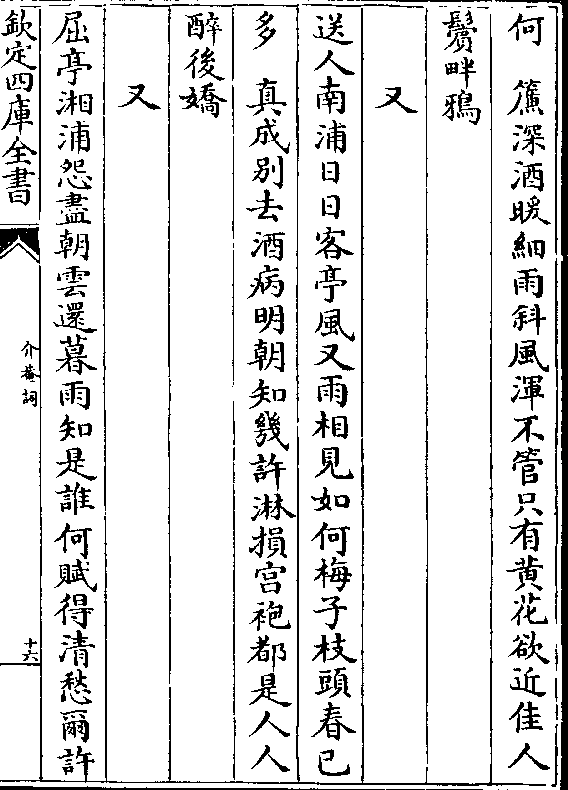 何　簾深酒暖細雨斜風渾不管只有黄花欲近佳人
鬢畔鴉
又
送人南浦日日客亭風又雨相見如何梅子枝頭春已
多　真成别去酒病明朝知幾許淋損宫袍都是人人
醉後嬌
又
屈亭湘浦怨盡朝雲還暮雨知是誰何賦得清愁爾許
欽定四庫全書
介菴詞
十六